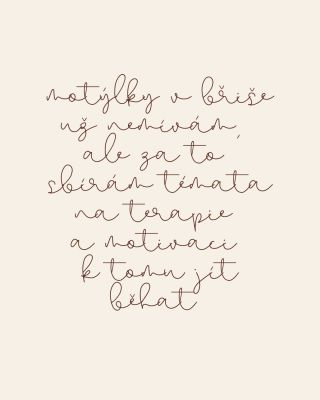 motýlky v břiše
už nemívám,
ale za to
sbírám témata
na terapie
a motivaci
k tomu jít
běhat